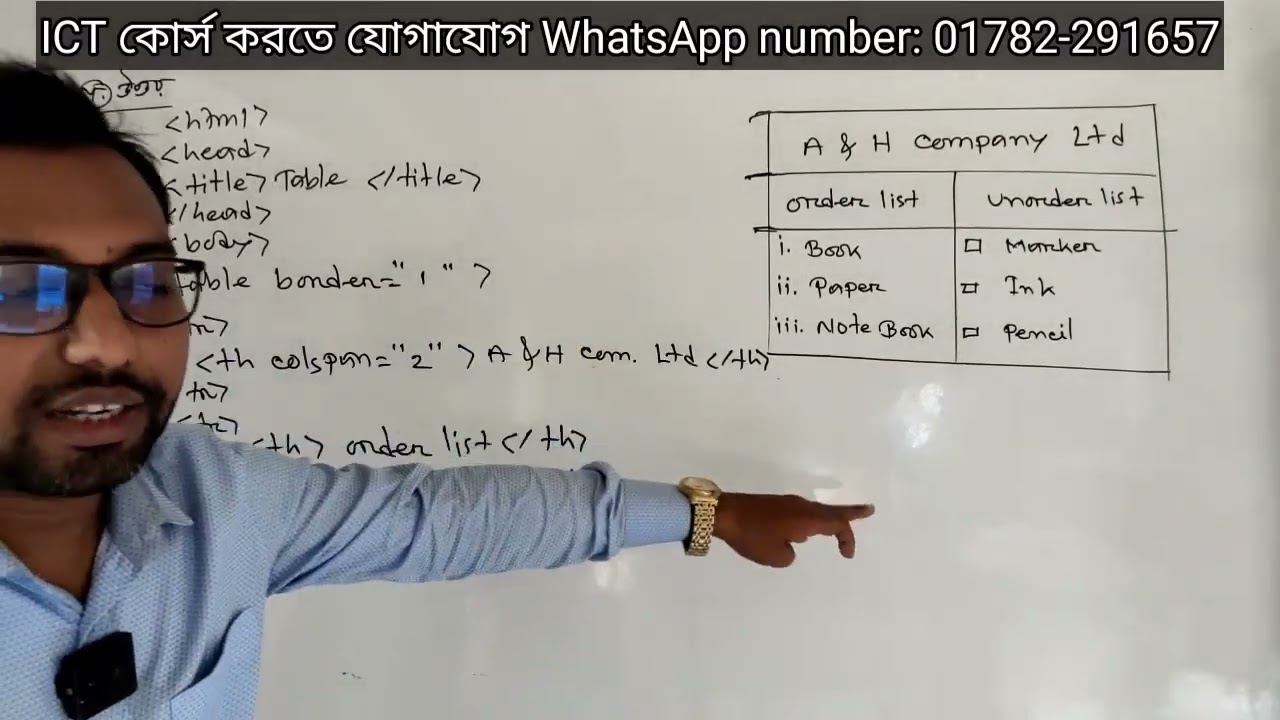 ICT কোর্স করতে যোগাযোগ WhatsApp number: 01782-291657
উত্তর
<html>
<head>
<title> Table </title>
</head>
<body>
table border="1" >
tr>
<th colspan="2" > A & H com. Ltd </th>
tr>
<tr>
<th> order list </th>
A & H company Ltd
order list unorder list
i. Book □ Marker
ii. Paper □ Ink
iii. Note Book □ Pencil